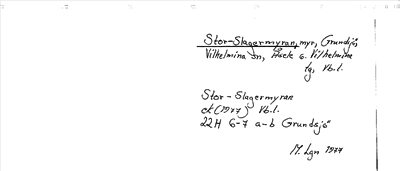 Stor-Slagermyran, myr, Grundsjö,
Vilhelmina sn, Åsele o. Vilhelmina
tg, Vb.l.
Stor-Slagermyran
ek (1977) Vb.l.
22H 6-7 a-b Grundsjö
M. Lgn 1977